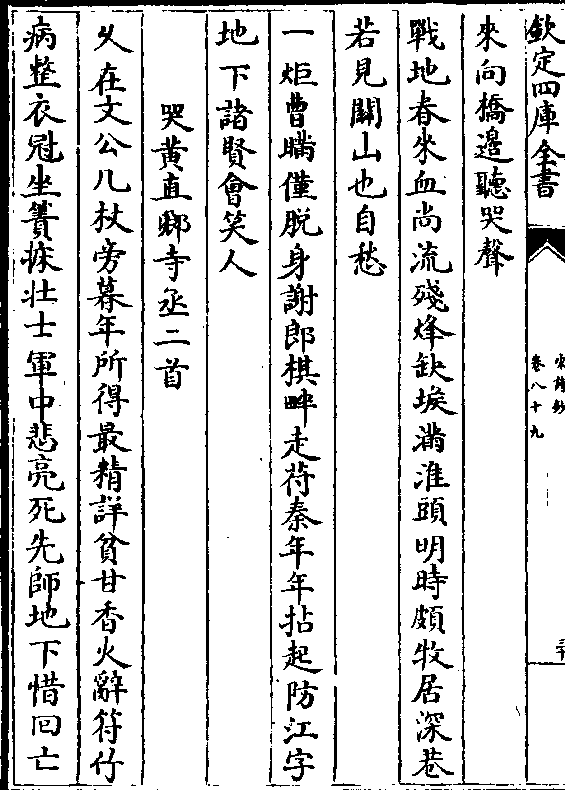 欽定四庫全書
宋詩鈔
卷八十九
來向橋邊聽哭聲
戰地春來血尚流殘烽缺堠滿淮頭明時頗牧居深巷
若見關山也自愁
一炬曹瞞僅脱身謝郎棋畔走苻秦年年拈起防江字
地下諸賢會笑人
哭黄直卿寺丞二首
乆在文公几杖旁暮年所得最精詳貧甘香火辭符竹
病整衣冠坐簀牀壯士軍中悲亮死先師地下惜回亡